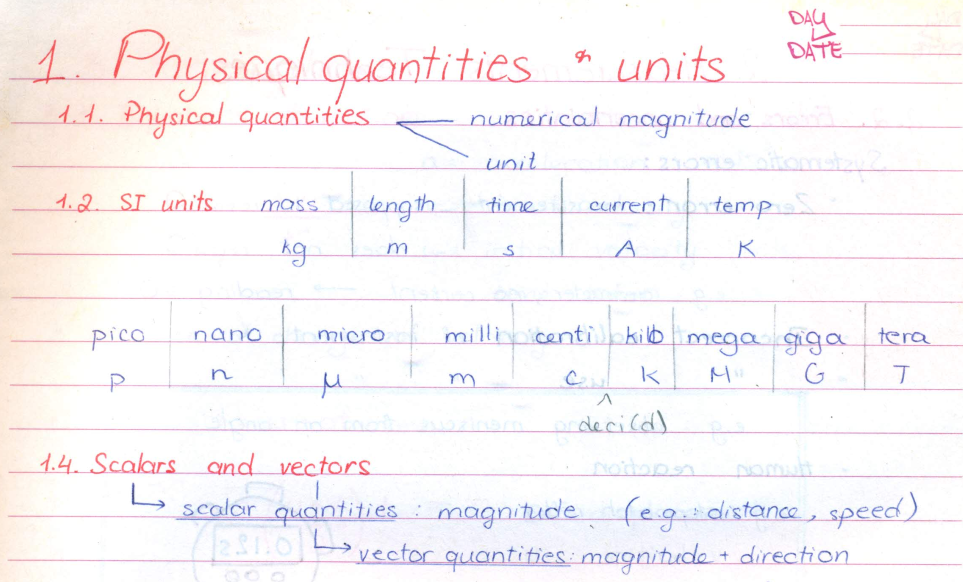 DAY
DATE
1. Physical quantities & units
1.1. Physical quantities numerical magnitude
unit
1.2. SI units mass length time current temp
kg m s A K
pico nano micro milli centi kilo mega giga tera
p n μ m c k M G T
deci(d)
1.4. Scalars and vectors
scalar quantities : magnitude. (e.g. : distance, speed)
vector quantities : magnitude + direction